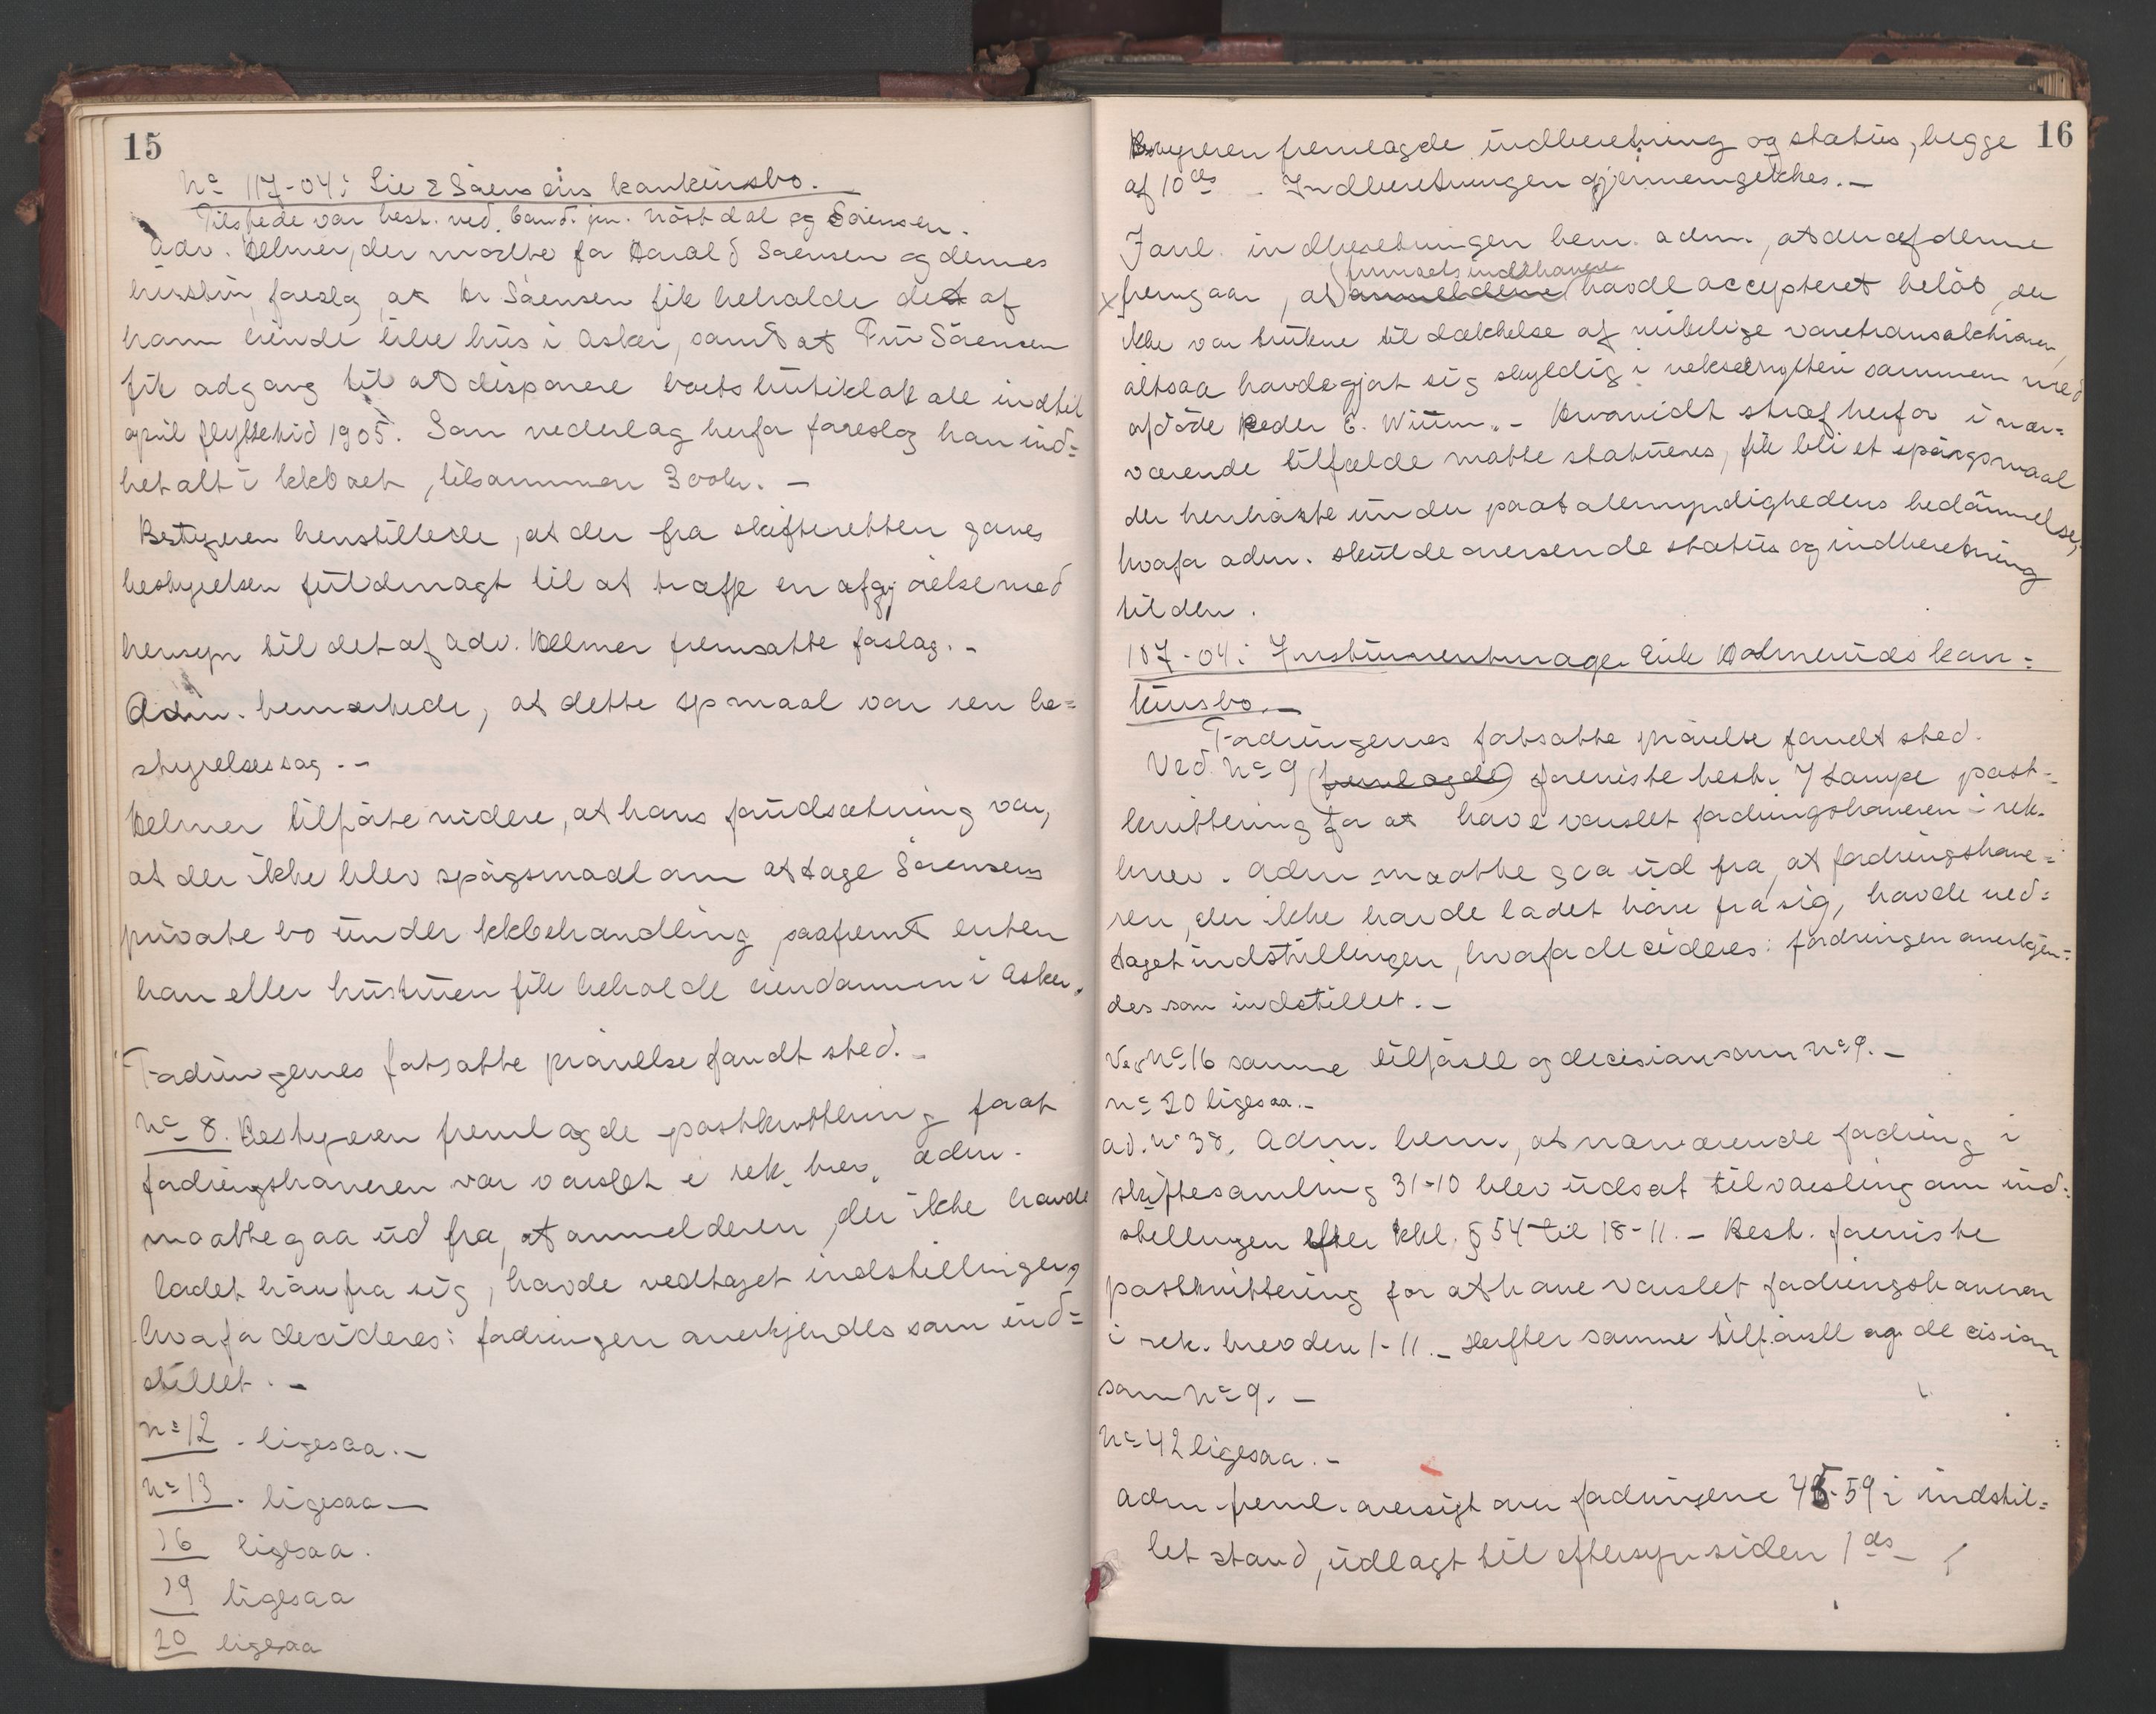 15
No 117-04: Lie & Sørensens konkursbo.
Tilstede var best. ved. Cand. jur. Nöstdal og Sörensen.
Adv. Helmer, der mødte for Harald Sørensen og dennes
hustru, foreslog, at Hr Sörensen fik beholde det af
ham eiende lille hus i Asker, samt at Fru Sörensen
fik adgang til at disponere boets butiklokale indtil
april flyttetid 1905. Som vederlag herfor foreslog han ind=
betalt i kkboet, tilsammen 300 kr. –
Bestyreren henstillede, at der fra skifteretten gaves
bestyrelsen fuldmagt til at træffe en afgjörelse med
hensyn til det af adv. Helmer fremsatte forslag. –
Adm. bemærkede, at dette spmaal var ren be=
styrelsessag. –
Helmer tilföiede videre, at hans forudsætning var,
at der ikke blev spörgsmaal om at tage Sörensens
private bo under kkbehandling, saafremt enten
han eller hustruen fik beholde eiendommen i Asker.
Fordringernes fortsatte prövelse fandt sted. –
No 8. Bestyreren fremlagde postkvittering for at
fordringshaveren var varslet i rek. brev. Adm.
maatte gaa ud fra, at anmelderen, der ikke havde
ladet höre fra sig, havde vedtaget indstillingen,
hvorfor decideres: fordringen anerkjendes som ind=
stillet. –
No 12. ligesaa. –
No 13. ligesaa –
16 ligesaa.
19 ligesaa
20 ligesaa
16
Bestyreren fremlagde indberetning og status, begge
af 10 ds. Indberetningen gjennemgikkes. –
Janl. indberetningen bem. adm., at der af denne
firmaets indehavere
fremgaar, at anmelderne havde accepteret belöb, der
ikke var trukne til dækkelse af virkelige varetransaktioner,
altsaa havde gjort sig skyldig i vekselrytteri sammen med
afdöde Peder E. Wittus. – Hvorvidt straf herfor i nær=
værende tilfælde maatte statueres, fik bli et spörgsmaal
der henhörte under paatalemyndighedens bedömmelse,
hvorfor adm. skulde oversende status og indberetning
til den.
107-04: Instrumentmager Erik Holmeruds kon=
kursbo. –
Fordringernes fortsatte prövelse fandt sted.
Ved No 9 (fremlagde) foreviste best. Y Lampe post=
kvittering for at have varslet fordringshaveren i rek.
brev. Adm maatte gaa ud fra, at fordringshave=
ren, der ikke havde ladet höre fra sig, havde ved=
taget indstillingen, hvorfor decideres: fordringen anerkjen=
des som indstillet. –
Ved No 16 samme tilförsel og decision som No 9. –
No 20 ligesaa. –
Ad. No 38. Adm. bem., at nærværende fordring i
skiftesamling 31-10 blev udsat til varsling om ind=
stillingen efter kkl. § 54 til 18-11. – Best. foreviste
postkvittering for at have varslet fordringshaveren
i rek. brev den 1-11. – Herefter samme tilförsel og decision
som No 9. –
No 42 ligesaa. –
Adm. freml. oversigt over fordringene 45-59 i indstil=
let stand, udlagt til eftersyn siden 1 ds –